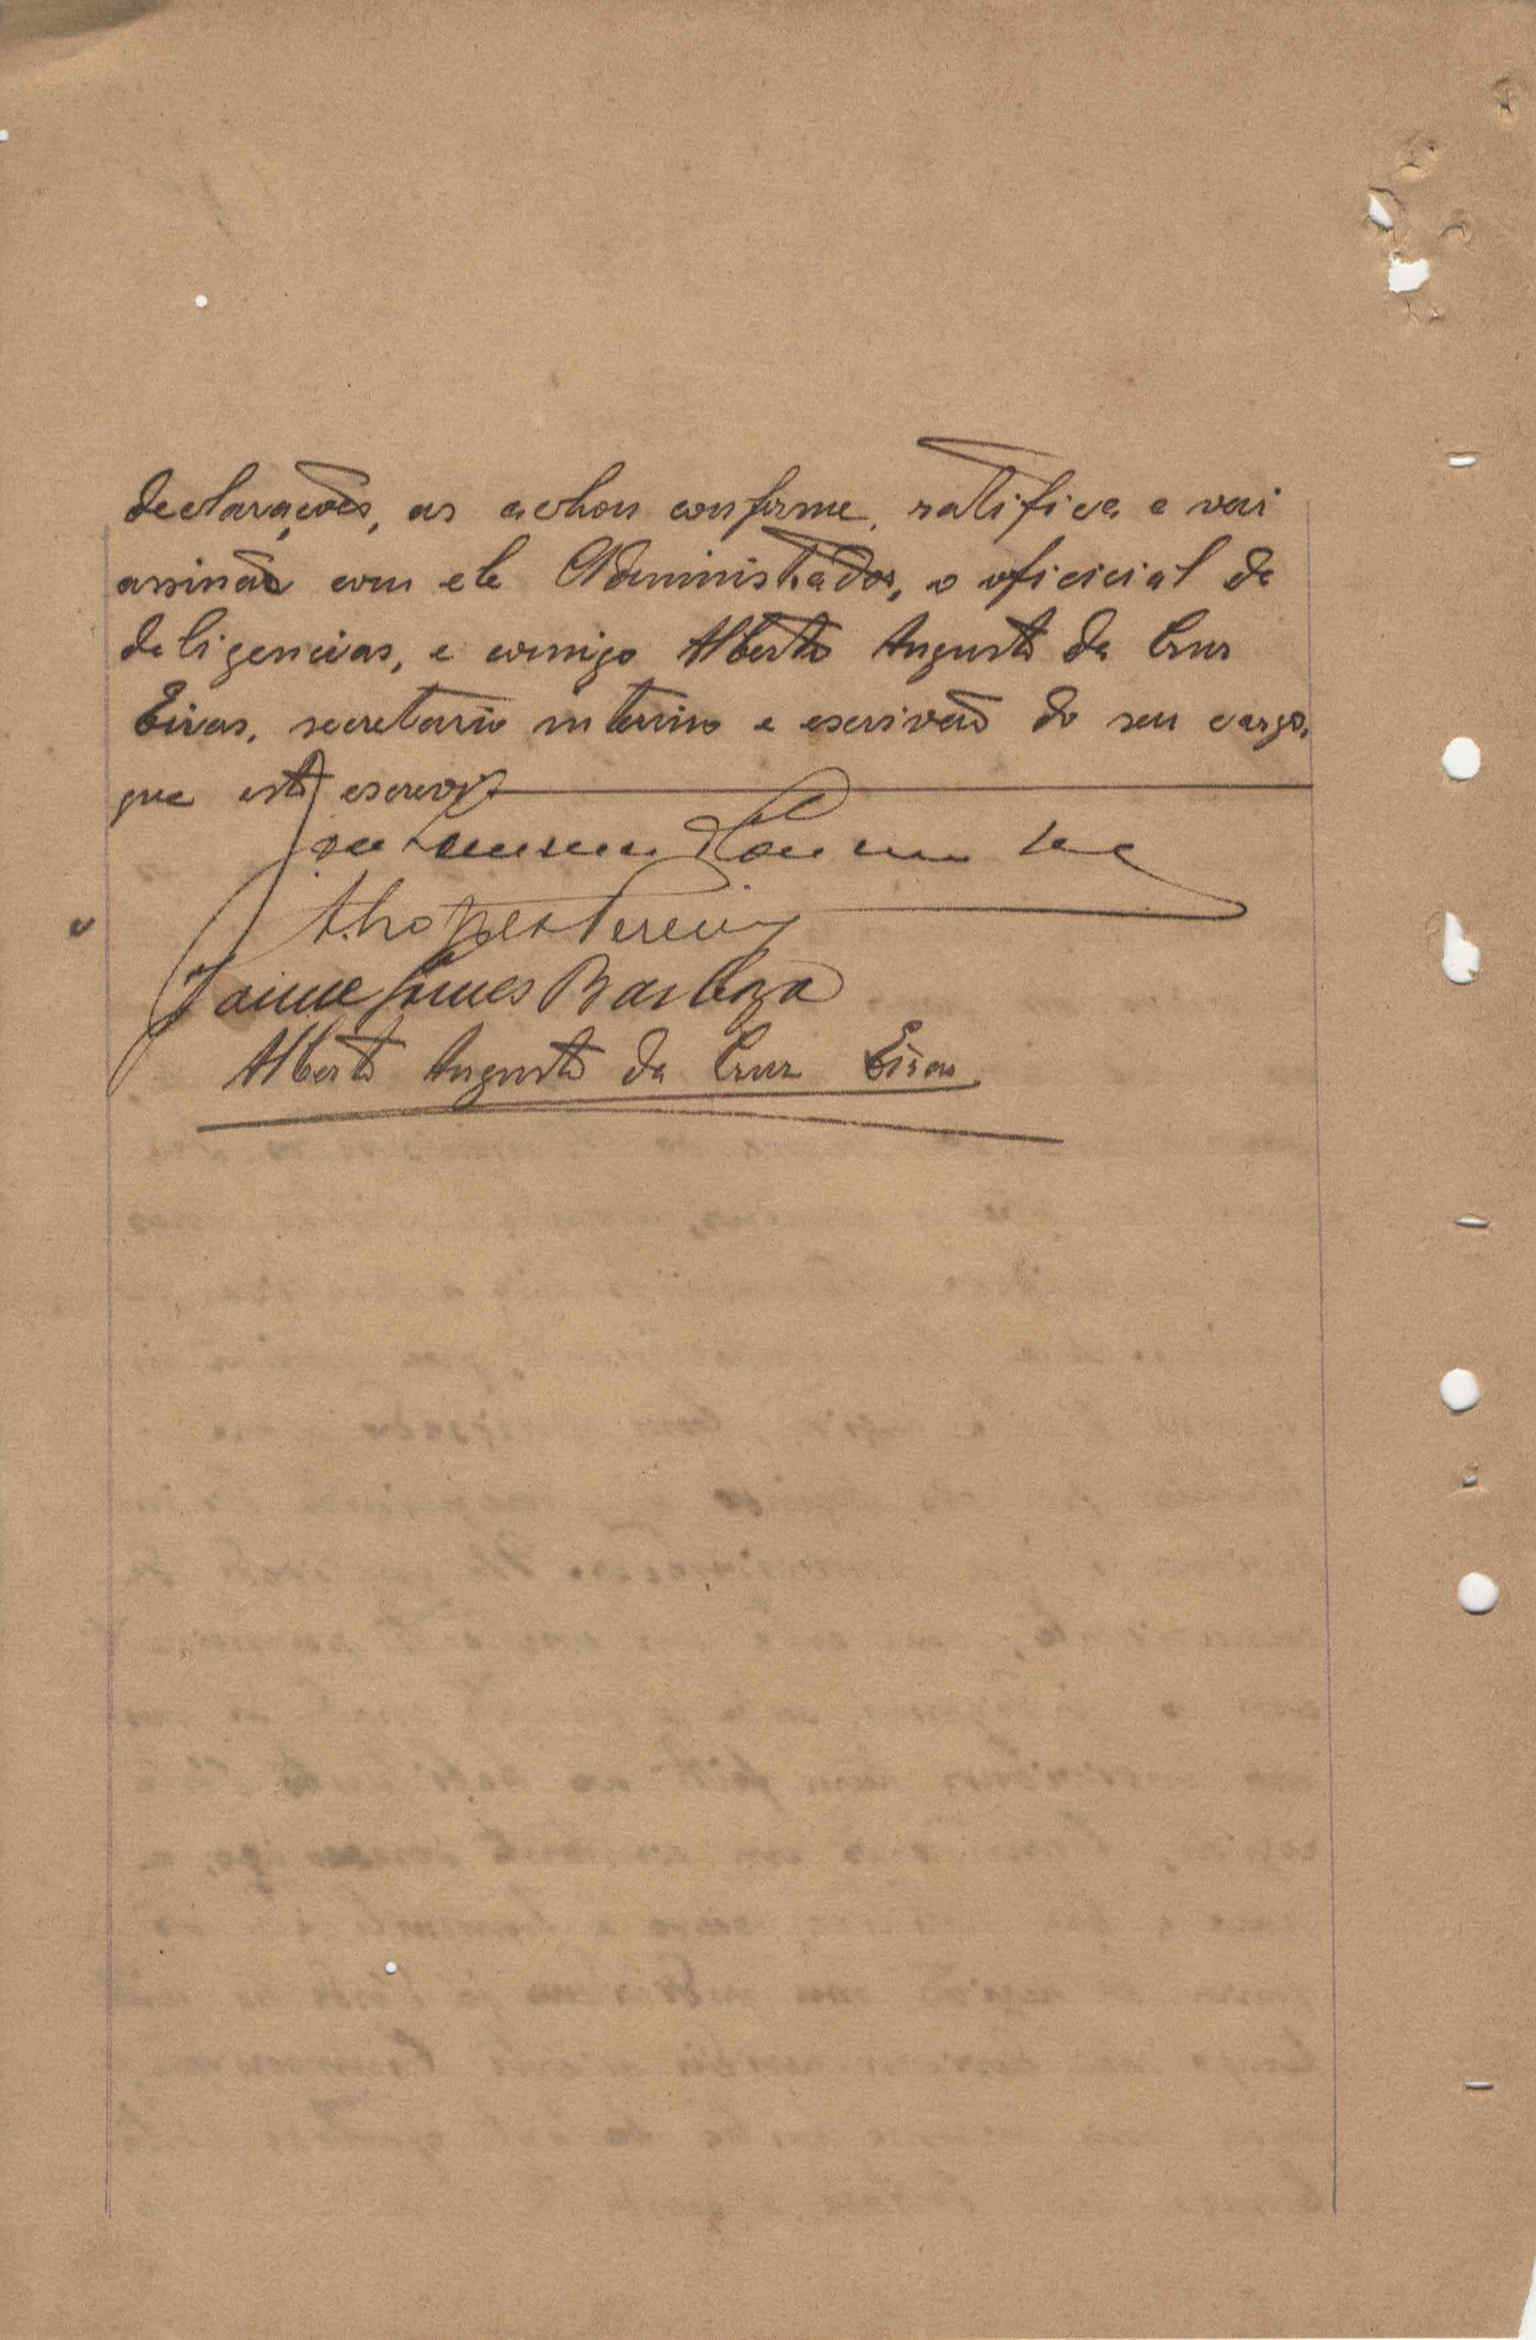 declarações, as achou conforme, ratifica e vai
assinar com ele Administrador, o oficicial de
deligencias, e comigo Alberto Augusto da Cruz
Eiras, secretario interino e escrivão do seu cargo,
que esta escrevi
A. Lopes Pereira
Jaime Gomes Barboza
Alberto Augusto da Cruz Eiras